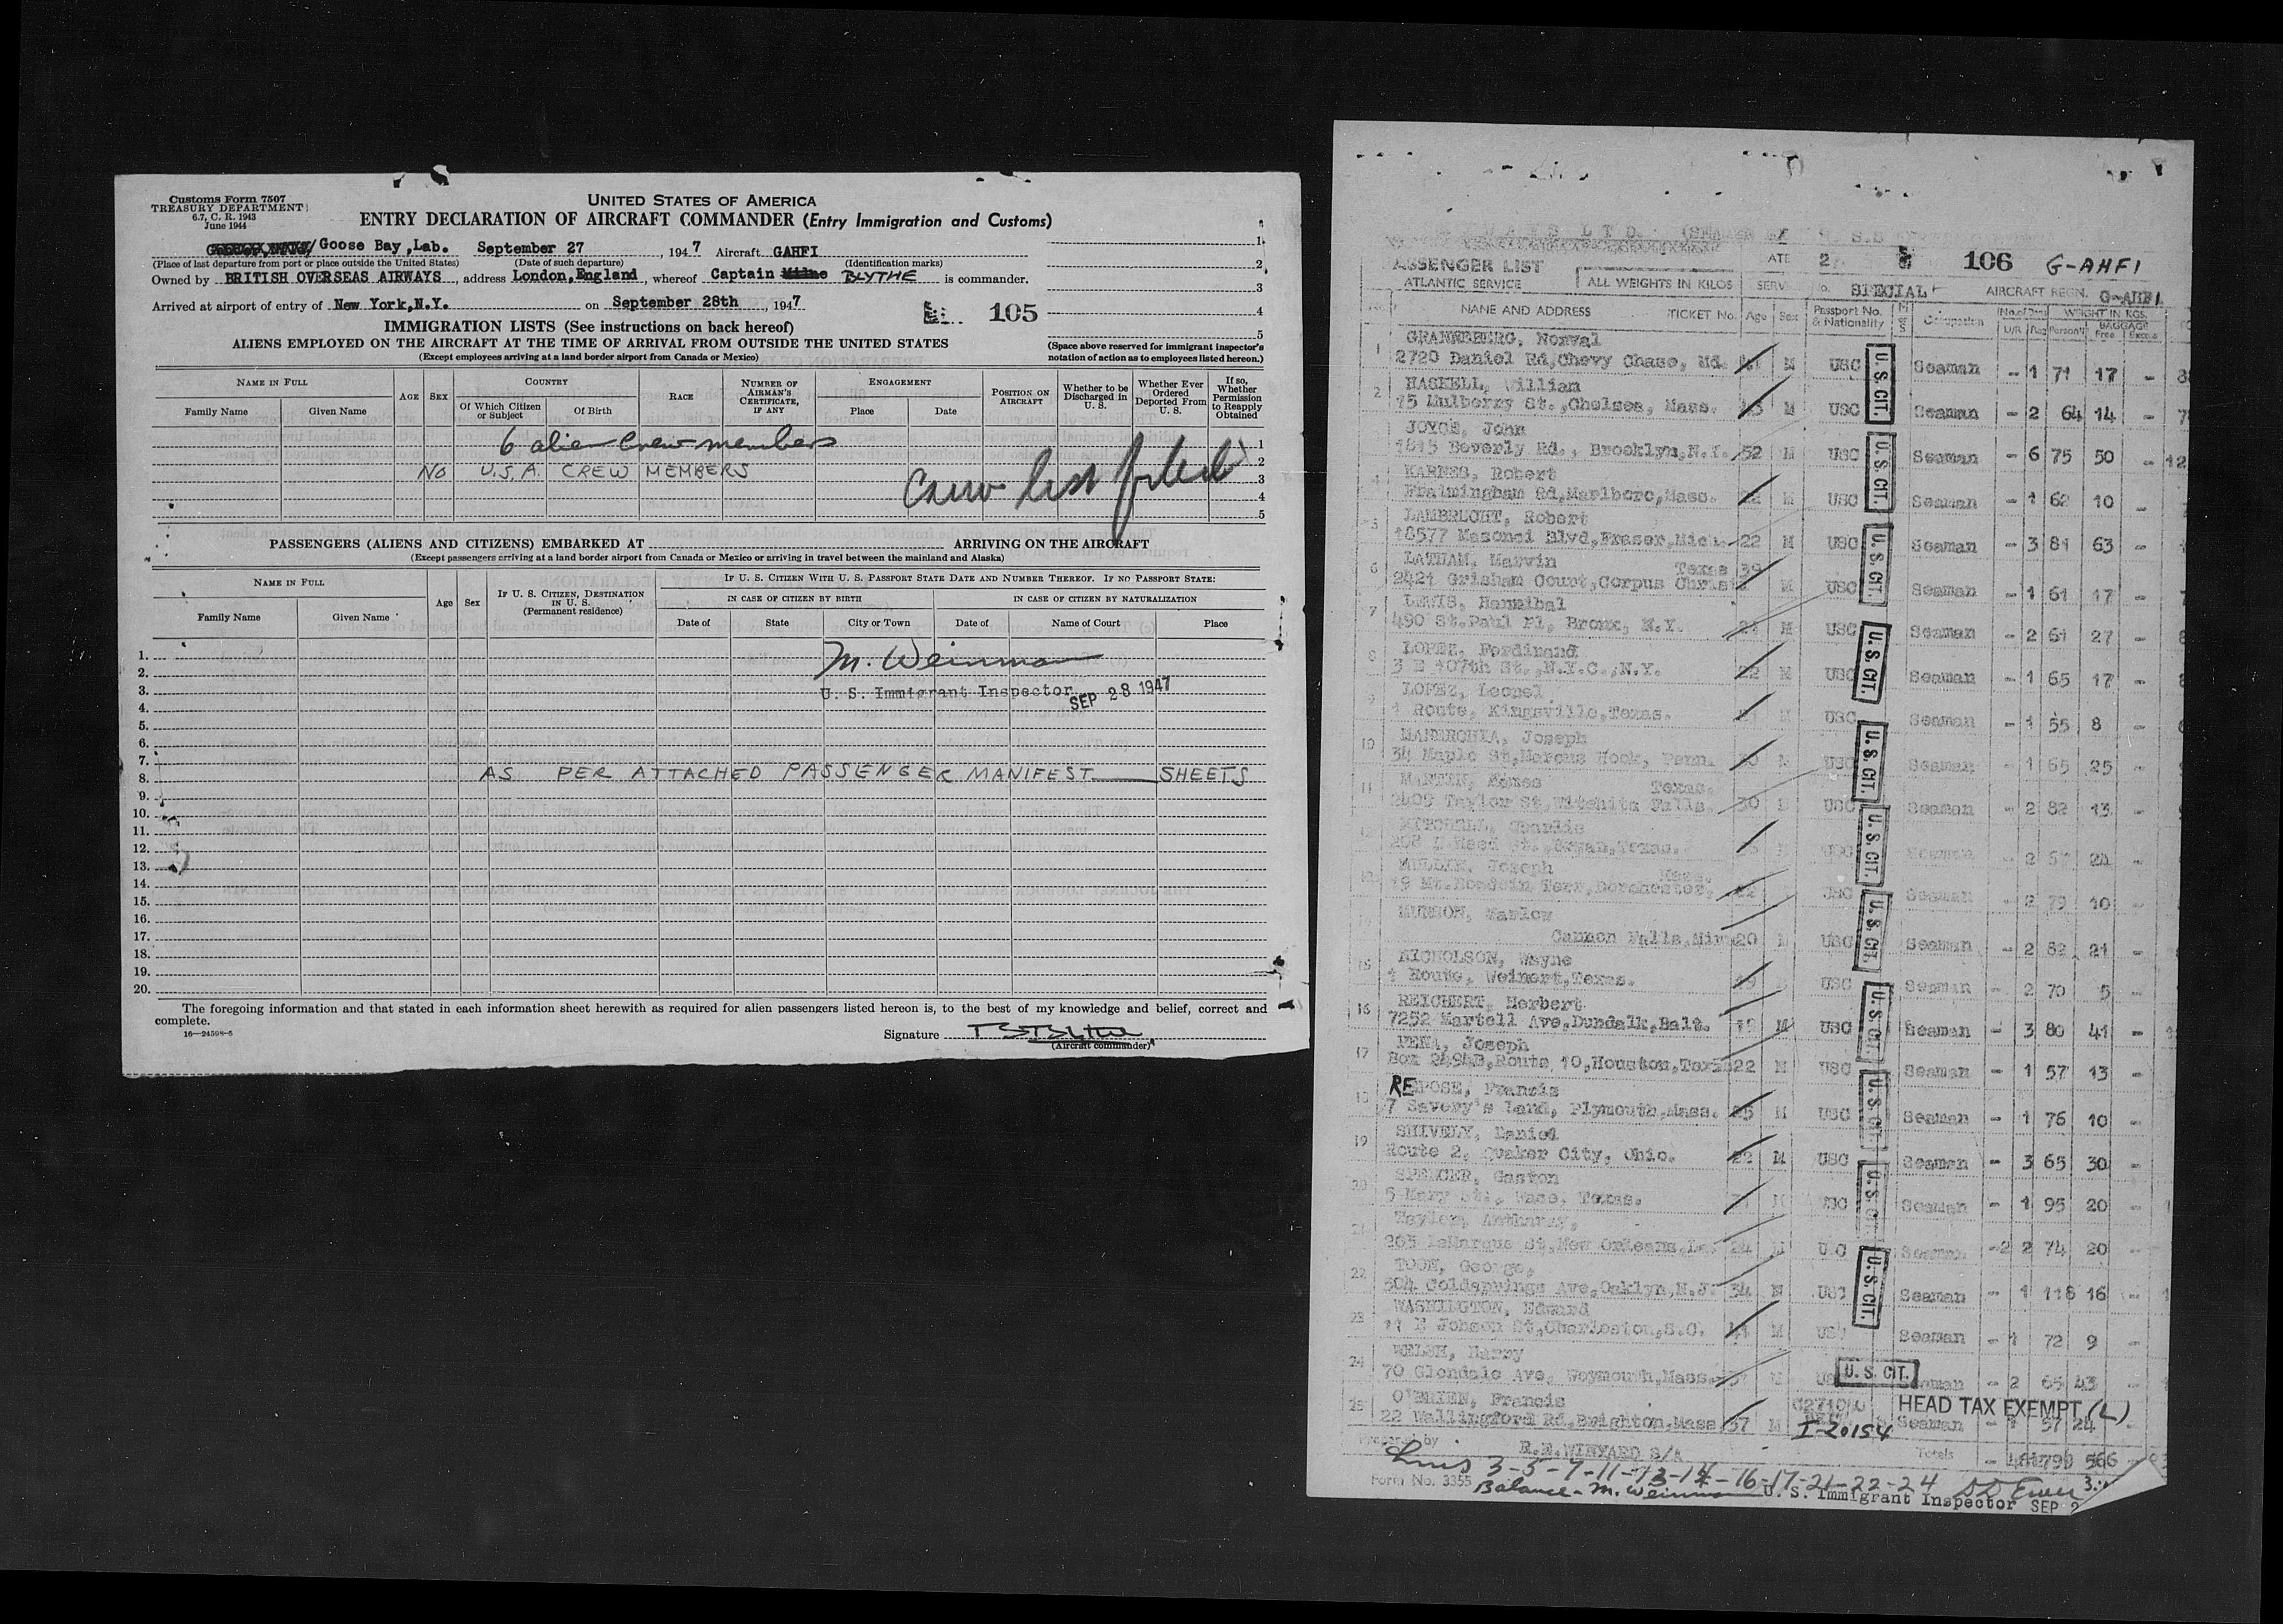 Customs Form 7507
TREASURY DEPARTMENT
6.7, C. R. 1943
June 1944
UNITED STATES OF AMERICA
ENTRY DECLARATION OF AIRCRAFT COMMANDER (Entry Immigration and Customs)
/Goose Bay,Lab. September 27, 1947 Aircraft GAHFI
(Place of last departure from port or place outside the United States) (Date of such departure) (Identification marks)
Owned by BRITISH OVERSEAS AIRWAYS, address London,England, whereof Captain Milne BLYTHE is commander.
Arrived at airport of entry of New York,N.Y. on September 28th, 1947
105
1
2
3
4
5
IMMIGRATION LISTS (See instructions on back hereof)
ALIENS EMPLOYED ON THE AIRCRAFT AT THE TIME OF ARRIVAL FROM OUTSIDE THE UNITED STATES
(Except employees arriving at a land border airport from Canada or Mexico)
(Space above reserved for immigrant inspector's notation of action as to employees listed hereon.)
NAME IN FULL AGE SEX COUNTRY RACE NUMBER OF AIRMAN'S CERTIFICATE, IF ANY ENGAGEMENT POSITION ON AIRCRAFT Whether to be Discharged in U. S. Whether Ever Ordered Deported From U. S. If so, Whether Permission to Reapply Obtained
Family Name Given Name Of Which Citizen or Subject Of Birth Place Date
6 alien crew members 1
No U.S.A. CREW MEMBERS 2
Crew list filed 3
4
5
PASSENGERS (ALIENS AND CITIZENS) EMBARKED AT ARRIVING ON THE AIRCRAFT
(Except passengers arriving at a land border airport from Canada or Mexico or arriving in travel between the mainland and Alaska)
NAME IN FULL Age Sex IF U. S. CITIZEN, DESTINATION IN U. S. (Permanent residence) IF U. S. CITIZEN WITH U. S. PASSPORT STATE DATE AND NUMBER THEREOF. IF NO PASSPORT STATE:
IN CASE OF CITIZEN BY BIRTH IN CASE OF CITIZEN BY NATURALIZATION
Family Name Given Name Date of State City or Town Date of Name of Court Place
1.
M. Weinman
2.
3. U. S. Immigrant Inspector SEP 28 1947
4.
5.
6.
7.
8. AS PER ATTACHED PASSENGER MANIFEST SHEETS
9.
10.
11.
12.
13.
14.
15.
16.
17.
18.
19.
20.
The foregoing information and that stated in each information sheet herewith as required for alien passengers listed hereon is, to the best of my knowledge and belief, correct and
complete.
16—24598-5
Signature
(Aircraft commander)
106 G-AHFI
PASSENGER LIST
ATLANTIC SERVICE ALL WEIGHTS IN KILOS SPECIAL AIRCRAFT REGN. G-AHFI
NAME AND ADDRESS TICKET No. Age Sex Passport No. & Nationality Occupation WEIGHT IN KGS.
BAGGAGE
Free Excess
1 GRANNEBERG, Norval
2720 Daniel Rd,Chevy Chase, Md. M USC Seaman - 1 71 17 -
2 HASKELL, William
75 Mulberry St.,Chelsea, Mass. M USC Seaman - 2 64 14 -
JOYCE, John
1815 Beverly Rd., Brooklyn,N.Y. 52 M USC Seaman - 6 75 50 -
KARNES, Robert
Framingham Rd,Marlboro,Mass. 22 M USC Seaman - 1 62 10 -
5 LAMBRECHT, Robert
18577 Masonci Blvd,Fraser,Mich. 22 M USC Seaman - 3 81 63 -
6 LATHAM, Marvin Texas 39
2421 Grisham Court,Corpus Christ M USC Seaman - 1 61 17 -
7 LEWIS, Hannibal
490 St.Paul Pl, Bronx, N.Y. M USC Seaman - 2 61 27 -
8 LOPEZ, Ferdinand
3 E 107th St.,N.Y.C.,N.Y. 22 M USC Seaman - 1 65 17 -
9 LOPEZ, Leonel
1 Route, Kingsville,Texas. M USC Seaman - 1 55 8 -
10 MANEROHIA, Joseph
34 Maple St,Marcus Hook, Penn. M USC Seaman - 1 65 25 -
11 MARTIN, James Texas.
2409 Taylor St,Witchita Falls. 30 USC Seaman - 2 82 13 -
MITCHELL, Charlie
Bryan,Texas. Seaman - 2 57 24 -
MULLIN, Joseph Mass.
19 Mt.Bowdoin Terr,Dorchester. Seaman - 2 79 10 -
MUNSON, Marlow
Cannon Falls,Min 20 USC Seaman - 2 82 21 -
15 NICHOLSON, Wayne
1 Route, Weinert,Texas. 19 USC Seaman - 2 70 5 -
16 REICHERT, Herbert
7252 Martell Ave,Dundalk,Balt. M USC Seaman - 3 80 41 -
17 PENA, Joseph
Box 2494B,Route 10,Houston,Tex 22 M USC Seaman - 1 57 13 -
18 REPOSE, Francis
7 Savory's Land, Plymouth,Mass. 25 M USC Seaman - 1 76 10 -
19 SHIVELY, Daniel
Route 2, Quaker City, Ohio. 22 M USC Seaman - 3 65 30 -
20 SPENCER, Gaston
5 Mary St., Waco, Texas. USC Seaman - 1 95 20 -
21 Taylor, Anthony,
205 LaHarque St,New Orleans,La. 24 Seaman -2 2 74 20 -
22 TOON, George,
504 Coldsprings Ave,Oaklyn,N.J. 34 Seaman - 1 118 16 -
23 WASHINGTON, Edward
11 E Johson St,Charleston,S.C. M Seaman - 1 72 9 -
24 WELSH, Harry
70 Glendale Ave, Weymouth,Mass. - 2 65 43 -
25 O'BRIEN, Francis
22 Wallingford Rd,Brighton,Mass 37 M Seaman - 1 57 24
U. S. CIT.
U. S. CIT.
U. S. CIT.
U. S. CIT.
U. S. CIT.
U. S. CIT.
U. S. CIT.
U. S. CIT.
U. S. CIT.
U. S. CIT.
U. S. CIT.
U. S. CIT.
HEAD TAX EXEMPT (L)
I-20154
Prepared by R.E.WINYARD S/A Totals 566
3-5-7-11-13-14-16-17-21-22-24
Form No. 3355 Balance - M. Weinman U. S. Immigrant Inspector SEP 2